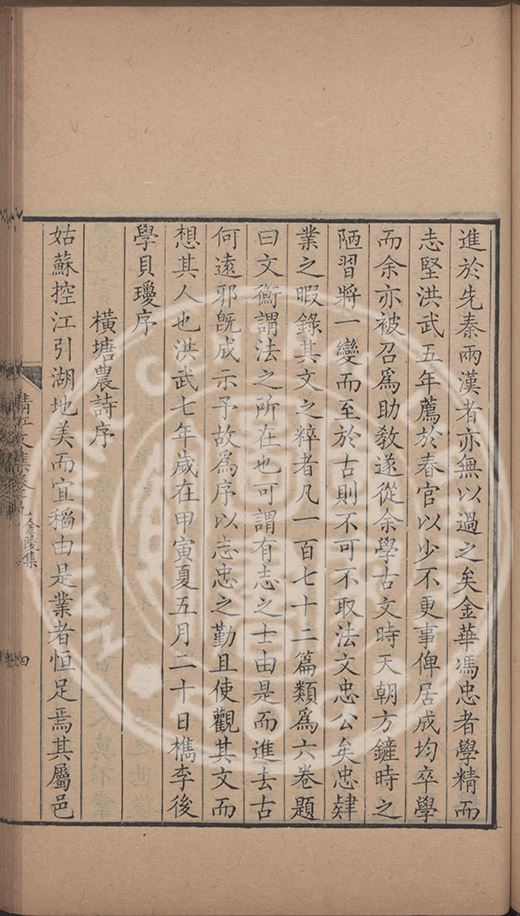 進於先秦兩漢者亦無以過之矣金華馮忠者學精而
志堅洪武五年薦於春官以少不更事俾居成均卒學
而余亦被召爲助敎遂從余學古文時天朝方鏟時之
陋習將一變而至於古則不可不取法文忠公矣忠肄
業之暇錄其文之粹者凡一百七十二篇類爲六卷題
曰文衡謂法之所在也可謂有志之士由是而進去古
何遠邪旣成示予故爲序以志忠之勤且使觀其文而
想其人也洪武七年歲在甲寅夏五月二十日檇李後
學貝瓊序
橫塘農詩序
姑蘇控江引湖地美而宜稻由是業者恒足焉其屬邑
金陵集